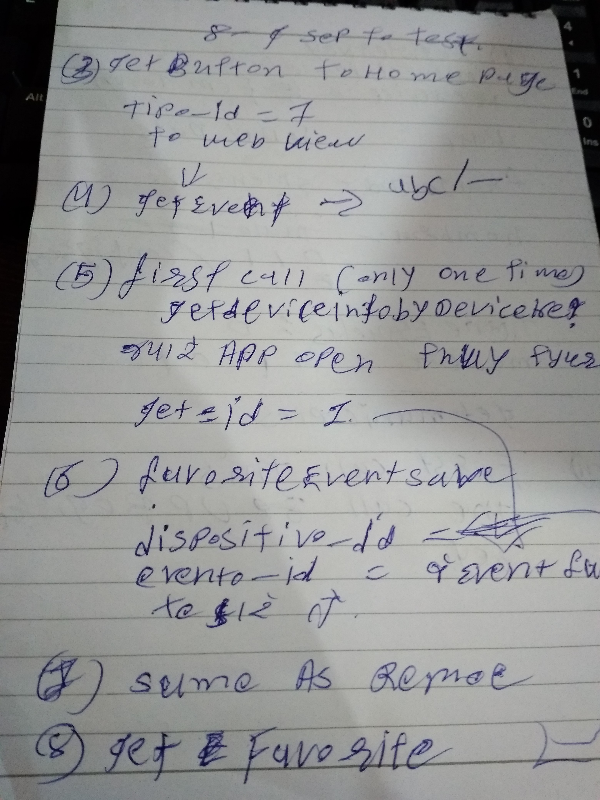 8-9 sep to test.
(3) get Button to Home page
tipo-id = 7
to web view
(4) getEvent => abc/-
(5) first call (only one time)
getdeviceinfobyDevice
APP open
get = id = 1.
(6) favoriteEventsave
dispositivo-id =
evento-id = event
to
(7) same As Remoe
(8) get Favorite
Alt
4
1
End
0
Ins